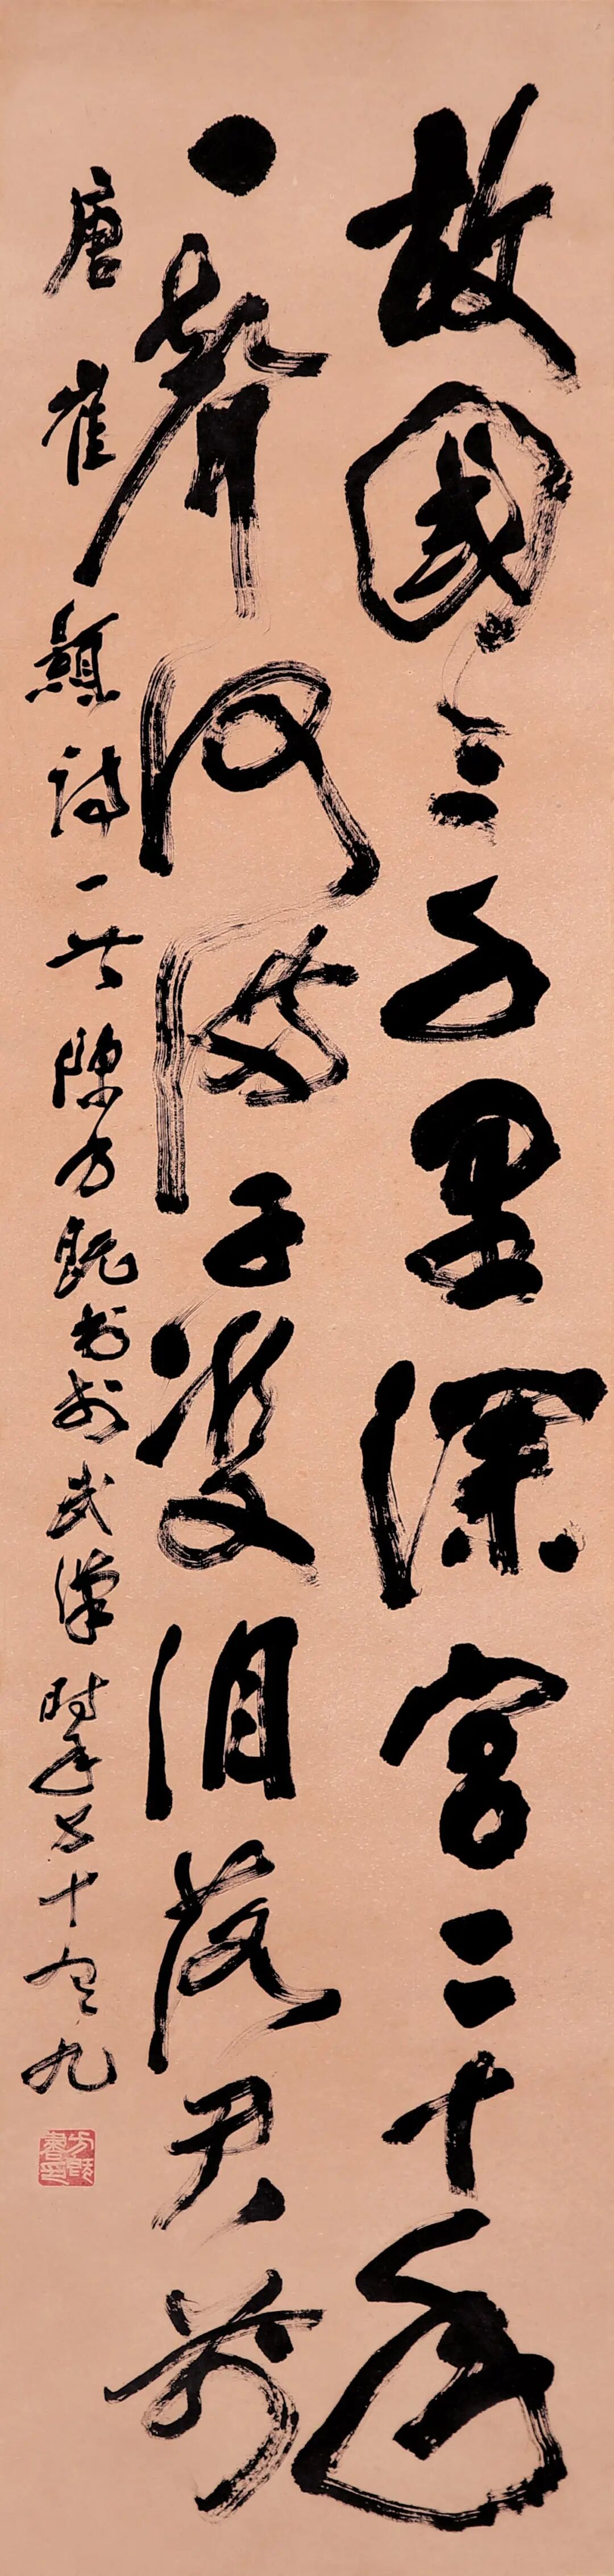 故國三千里深宮二十年
一聲何滿子雙淚落君前
唐崔顥詩一首陳方既書於武漢時年七十有九